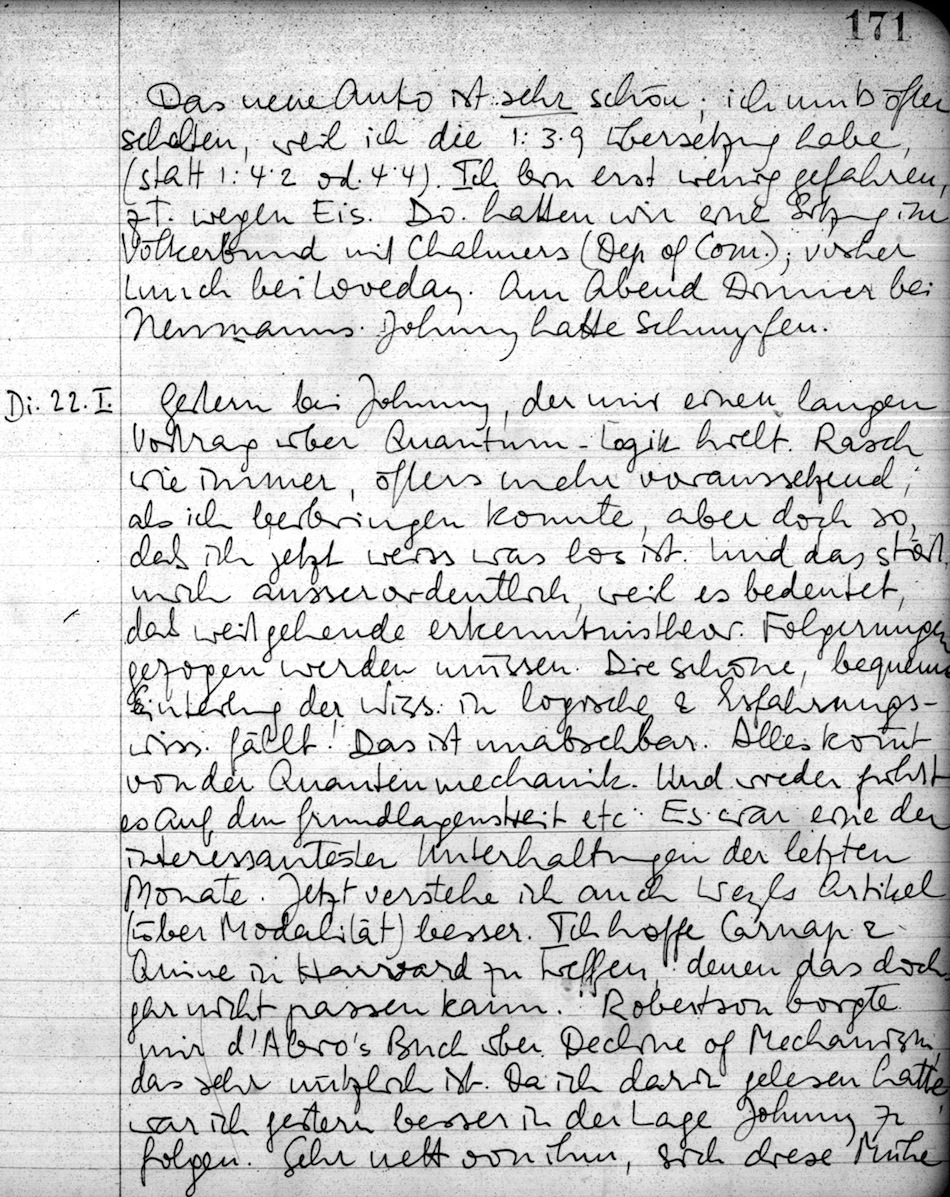 171
Das neue Auto ist sehr schön; ich muß öfter
schalten, weil ich die 1:3.9 Übersetzung habe,
(statt 1:4.2 od. 4.4). Ich bin erst wenig gefahren,
z.T. wegen Eis. Do. hatten wir eine Sitzung im
Völkerbund mit Chalmers (Dep of Com.); vorher
Lunch bei Loveday. Am Abend Dinner bei
Neumanns. Johnny hatte Schnupfen.
Di. 22. I. Gestern bei Johnny, der mir einen langen
Vortrag über Quantum-Logik hielt. Rasch
wie immer, öfters mehr voraussetzend,
als ich beibringen konnte, aber doch so,
daß ich jetzt weiss was los ist. Und das stört
mich ausserordentlich, weil es bedeutet,
daß weitgehende erkenntnistheor. Folgerungen
gezogen werden müssen. Die schöne, bequeme
Einteilung der Wiss. in logische & Erfahrungs-
wiss. fällt! Das ist unabsehbar. Alles kommt
von der Quantenmechanik. Und wieder führt
es auf den Grundlagenstreit etc. Es war eine der
interessantesten Unterhaltungen der letzten
Monate. Jetzt verstehe ich auch Weyls Artikel
(über Modalität) besser. Ich hoffe Carnap &
Quine in Harvard zu treffen, denen das doch
gar nicht passen kann. Robertson borgte
mir d'Abro's Buch über Decline of Mechanism,
das sehr nützlich ist. Da ich darin gelesen hatte
war ich gestern besser in der Lage Johnny zu
folgen. Sehr nett von ihm, sich diese Mühe